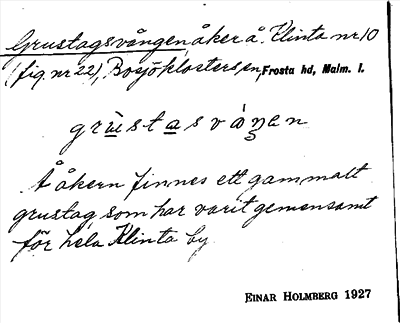 Grustagsvången, åker å. Klinta nr 10
(fig. nr 22), Bosjöklosters sn, Frosta hd, Malm. l.
grùstasváŋen
Å åkern finnes ett gammalt
grustag, som har varit gemensamt
för hela Klinta by.
EINAR HOLMBERG 1927